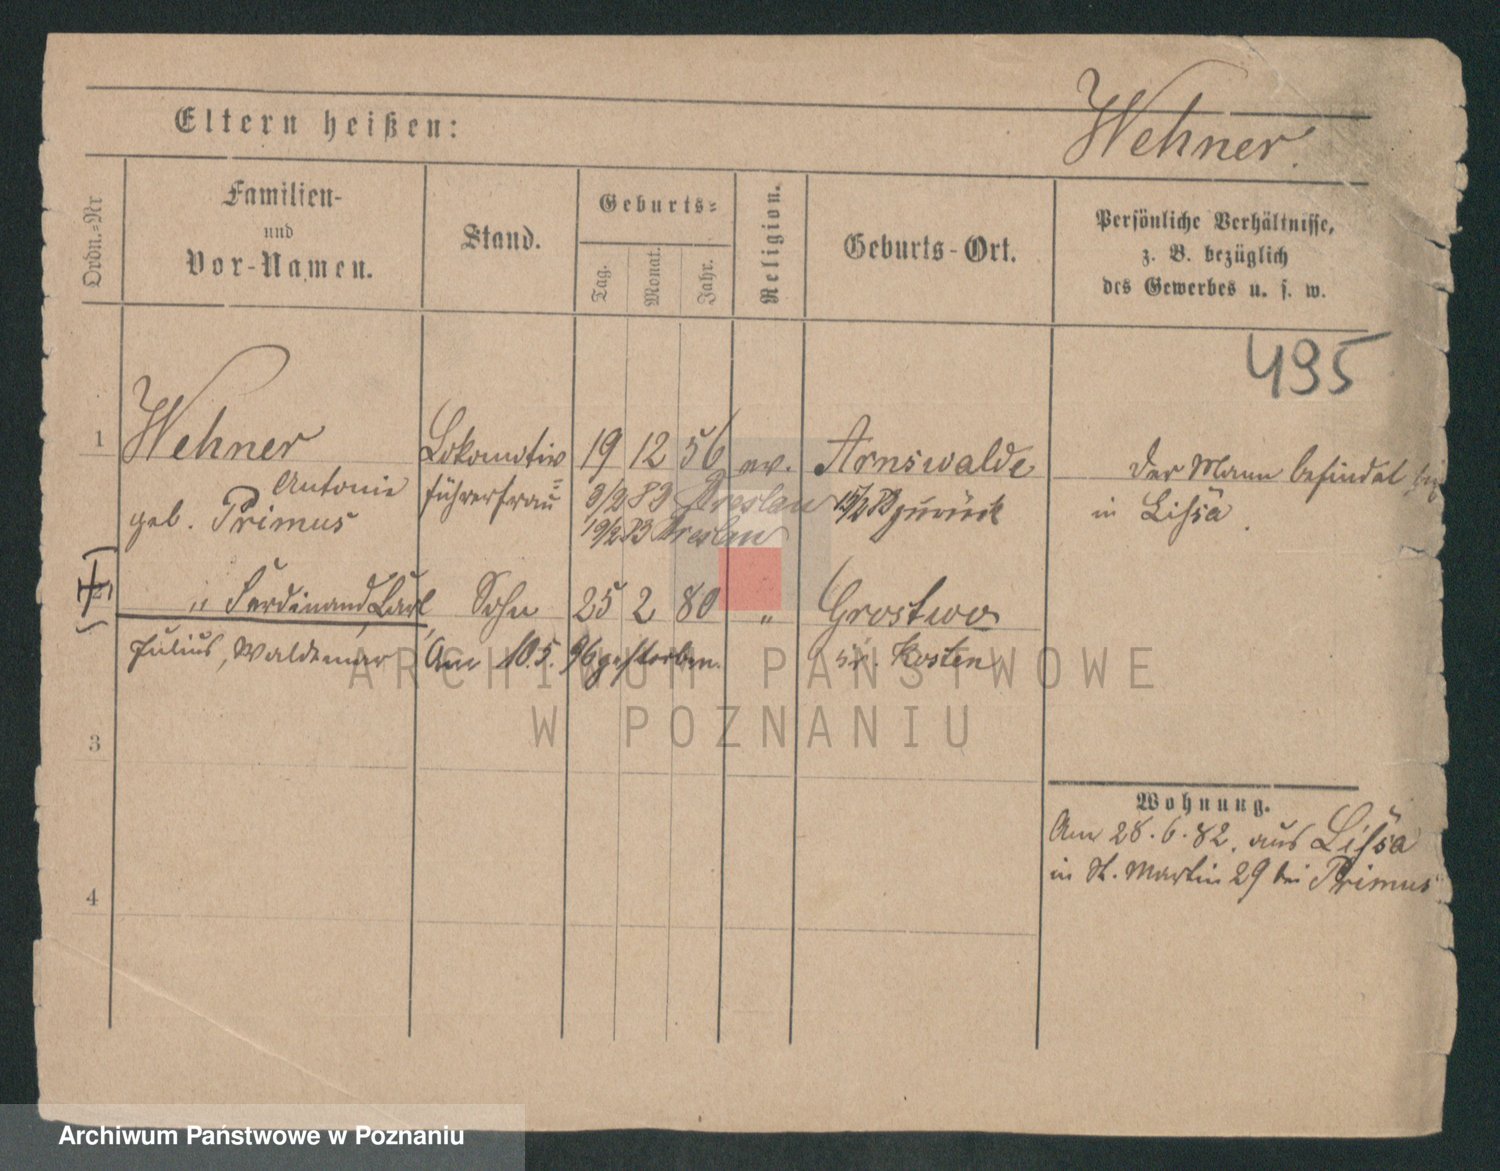 Wehner.
Eltern heißen:
Ordn.=Nr
Familien-
und
Vor-Namen.
Stand.
Geburts=
Tag.
Monat.
Jahr.
Religion.
Geburts-Ort.
Persönliche Verhältnisse,
z. B. bezüglich
des Gewerbes u. s. w.
495
1
Wehner
Antonie
geb. Primus
Lokomotiv=
führerfrau
19 12 56
ev.
Arnswalde
9/2 83 Breslau 15/2 83 zurück
19/2 83 Breslau
Der Mann befindet sich
in Lissa.
" Ferdinand, Carl,
Julius, Waldemar
Sohn
25 2 80
"
Grostwo
Kr. Kosten
Am 10.5.96 gestorben.
3
4
Wohnung.
Am 28.6.82. aus Lissa
in St. Martin 29 bei Primus
ARCHIWUM PAŃSTWOWE
W POZNANIU
Archiwum Państwowe w Poznaniu